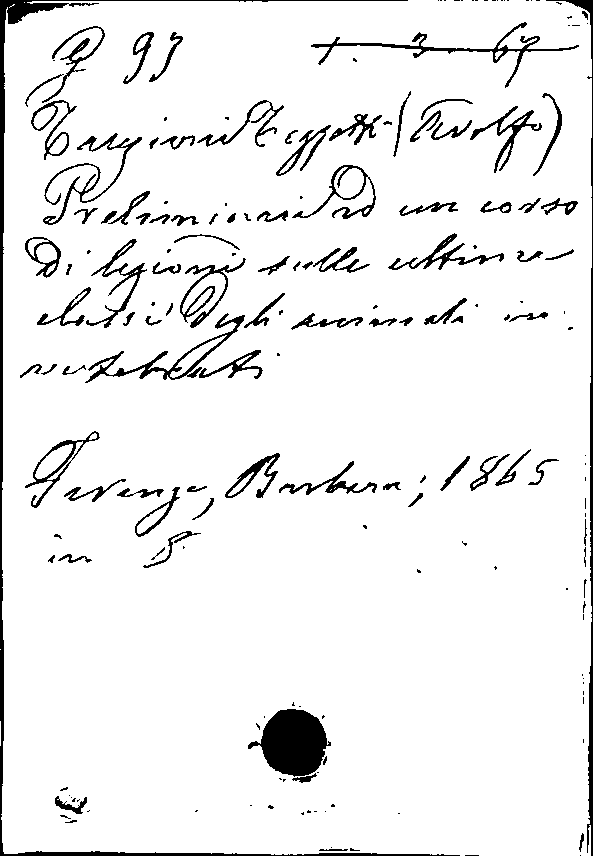 P 93 1. 3. 67
Targioni Tozzetti (Adolfo)
Preliminari ad un corso
di lezioni sulle ultime
classi degli animali in-
vertebrati
Firenze, Barbera; 1865
in 8